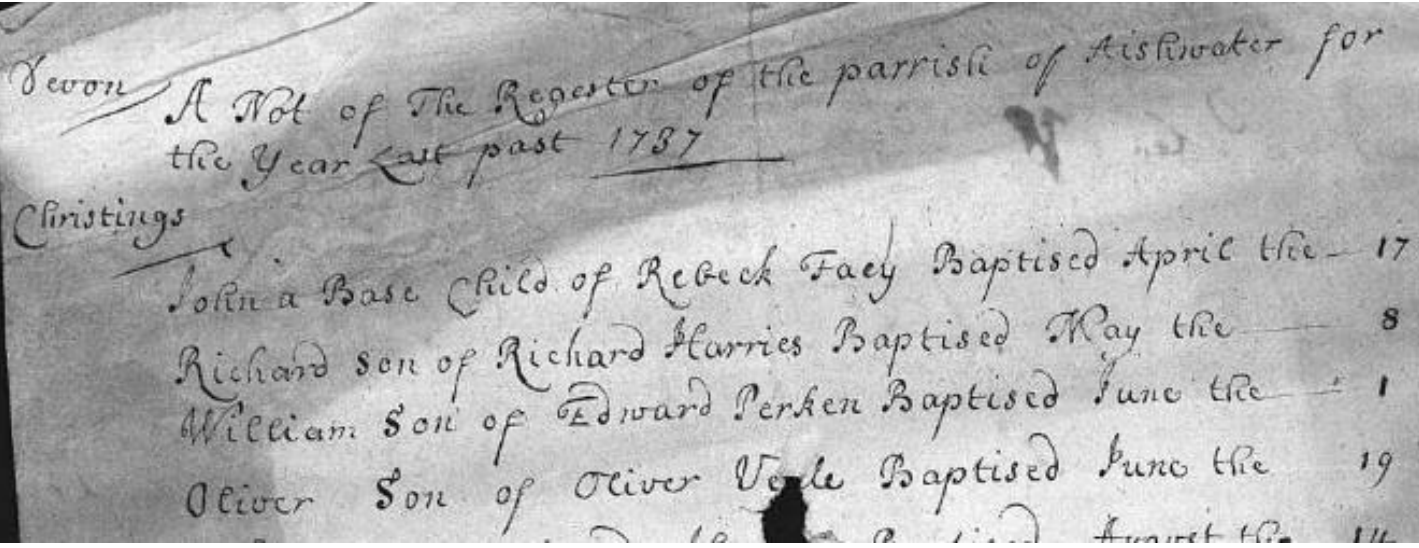 Devon
A Not of The Regester of the parrish of Aishwater for
the Year Last past 1737
Christings
John a Base Child of Rebeck Faey Baptised April the 17
Richard Son of Richard Harries Baptised May the 8
William Son of Edward Perken Baptised June the 1
Oliver Son of Oliver Baptised June the 19
Baptised August the 14